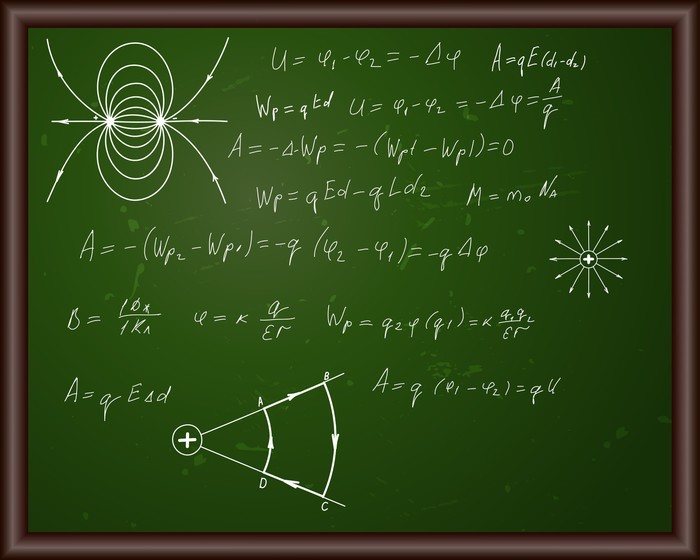 U = φ₁ - φ₂ = - Δφ   A = qE(d₁-d₂)
Wp = qEd   U = φ₁ - φ₂ = - Δφ = A/q
A = - ΔWp = - (Wp1 - Wp1) = 0
Wp = qEd - qLd₂   M = m₀ Nᴀ
A = - (Wp₂ - Wp₁) = - q (φ₂ - φ₁) = - q Δφ
φ = к q/εr   Wp = q₂φ(q₁) = к q₁q₂/εr
A = q EΔd   A = q (φ₁ - φ₂) = qU
+ -
+
+
A
B
C
D